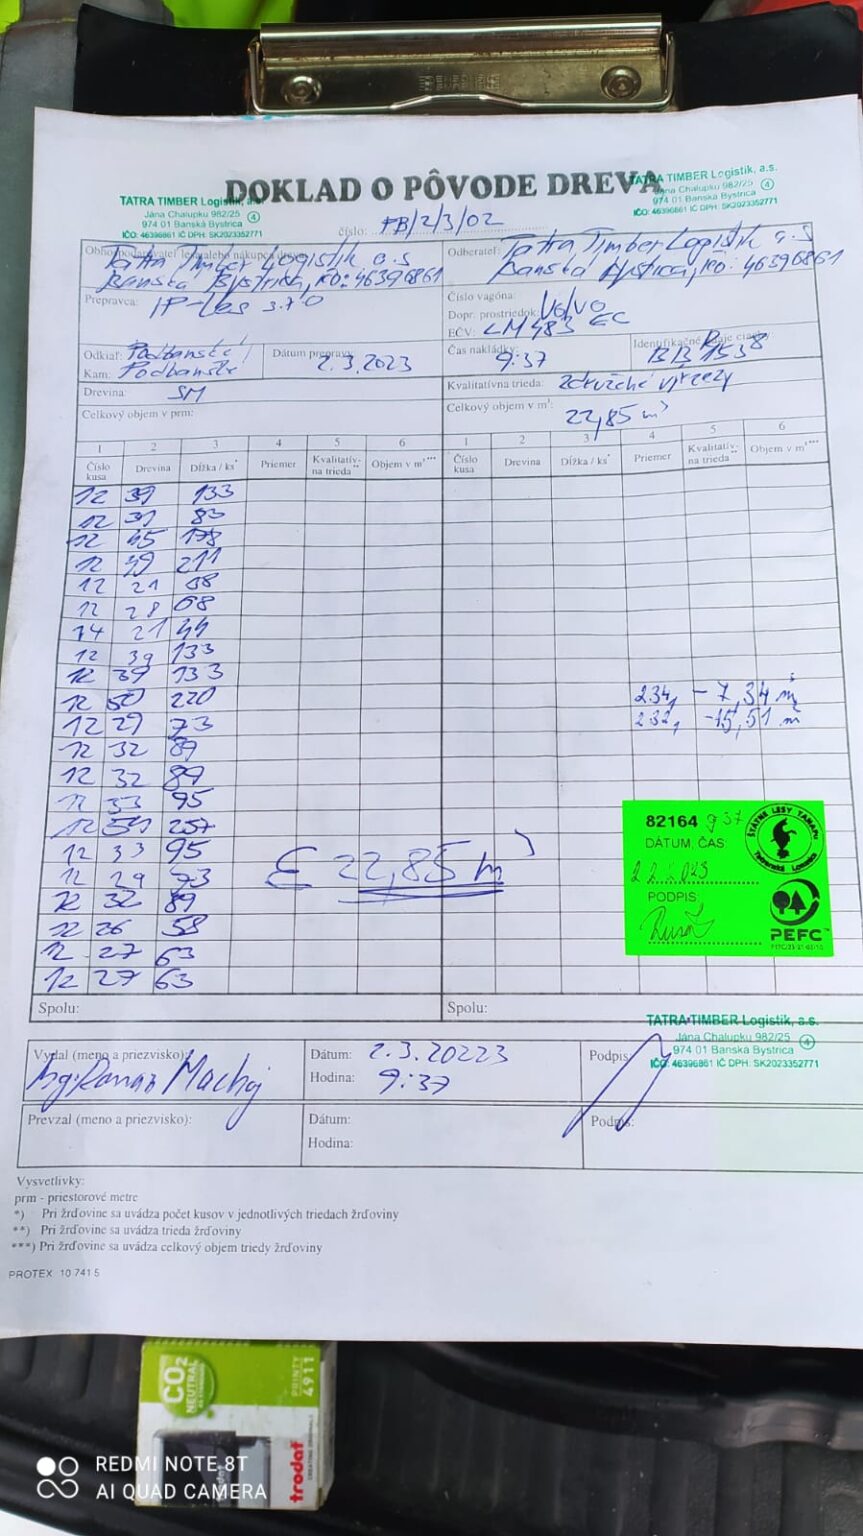 DOKLAD O PÔVODE DREVA
TATRA TIMBER Logistik, a.s.
Jána Chalupku 982/25
974 01 Banská Bystrica
IČO: 46396861 IČ DPH: SK2023352771
4
TATRA TIMBER Logistik, a.s.
Jána Chalupku 982/25
974 01 Banská Bystrica
IČO: 46396861 IČ DPH: SK2023352771
4
číslo: PB/2/3/02
Tatra Timber Logistik a.s
Banská Bystrica, IČO: 46396861
Odberateľ: Tatra Timber Logistik a.s
Banská Bystrica, IČO: 46396861
Prepravca: IP-Les s.r.o
Číslo vagóna:
Dopr. prostriedok: Volvo
EČV: LM 483 EC
Odkiaľ: Podbanské/
Kam: Podbanské
Dátum prepravy: 2.3.2023
Čas nakládky: 9:37
Identifikačné údaje ciachy
BB 1538
Drevina: SM
Kvalitatívna trieda: združené výrezy
Celkový objem v prm:
Celkový objem v m³: 22,85 m³
1 2 3 4 5 6 1 2 3 4 5 6
Číslo kusa Drevina Dĺžka / ks* Priemer Kvalitatív- na trieda** Objem v m³*** Číslo kusa Drevina Dĺžka / ks* Priemer Kvalitatív- na trieda** Objem v m³***
12 39 133
12 31 83
12 45 178
12 49 211
12 21
12 28 68
14 21 44
12 39 133
12 39 133
12 50 220
12 29 73
12 32 89
12 32 89
12 33 95
12 54 257
12 33 95
12 29 73
12 32 89
12 26 58
12 27 63
12 27 63
234, - 7,34 m³
232, - 15,51 m³
Σ 22,85 m³
82164 9 37
DÁTUM, ČAS
2.2.2023
PODPIS
ŠTÁTNE LESY TANAPU
Tatranská Lomnica
PEFC™
Spolu:
Spolu:
TATRA TIMBER Logistik, a.s.
Jána Chalupku 982/25
974 01 Banská Bystrica
IČO: 46396861 IČ DPH: SK2023352771
4
Vydal (meno a priezvisko):
Ing. Roman Machaj
Dátum: 2.3.20223
Hodina: 9:37
Podpis:
Prevzal (meno a priezvisko):
Dátum:
Hodina:
Podpis:
Vysvetlivky:
prm - priestorové metre
*) Pri žrďovine sa uvádza počet kusov v jednotlivých triedach žrďoviny
**) Pri žrďovine sa uvádza trieda žrďoviny
***) Pri žrďovine sa uvádza celkový objem triedy žrďoviny
PROTEX 10 741 5
CO2
NEUTRAL
PRINTY
4911
trodat
REDMI NOTE 8T
AI QUAD CAMERA